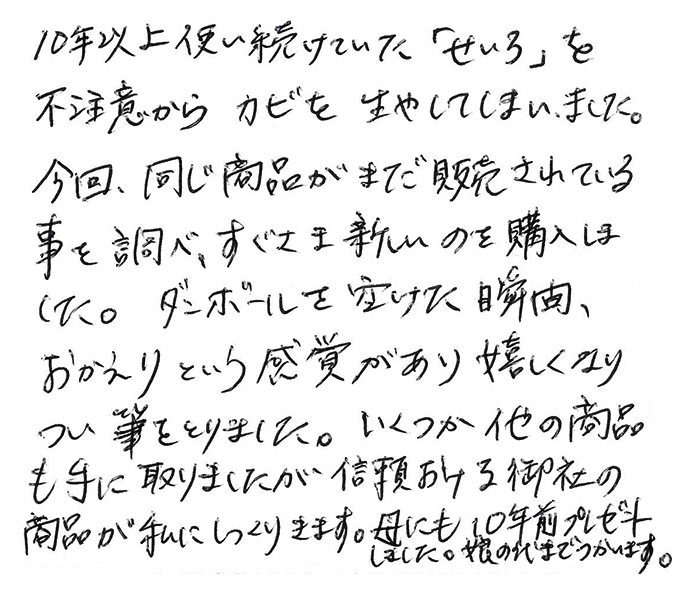 10年以上使い続けていた「せいろ」を
不注意から カビを 生やしてしまいました。
今回、同じ商品がまだ販売されている
事を調べ、すぐさま新しいのを購入しま
した。ダンボールを空けた瞬間、
おかえりという感覚があり嬉しくなり
つい筆をとりました。いくつか他の商品
も手に取りましたが信頼おける御社の
商品が私にしっくりきます。母にも10年前プレゼント
しました。娘の代までつかいます。